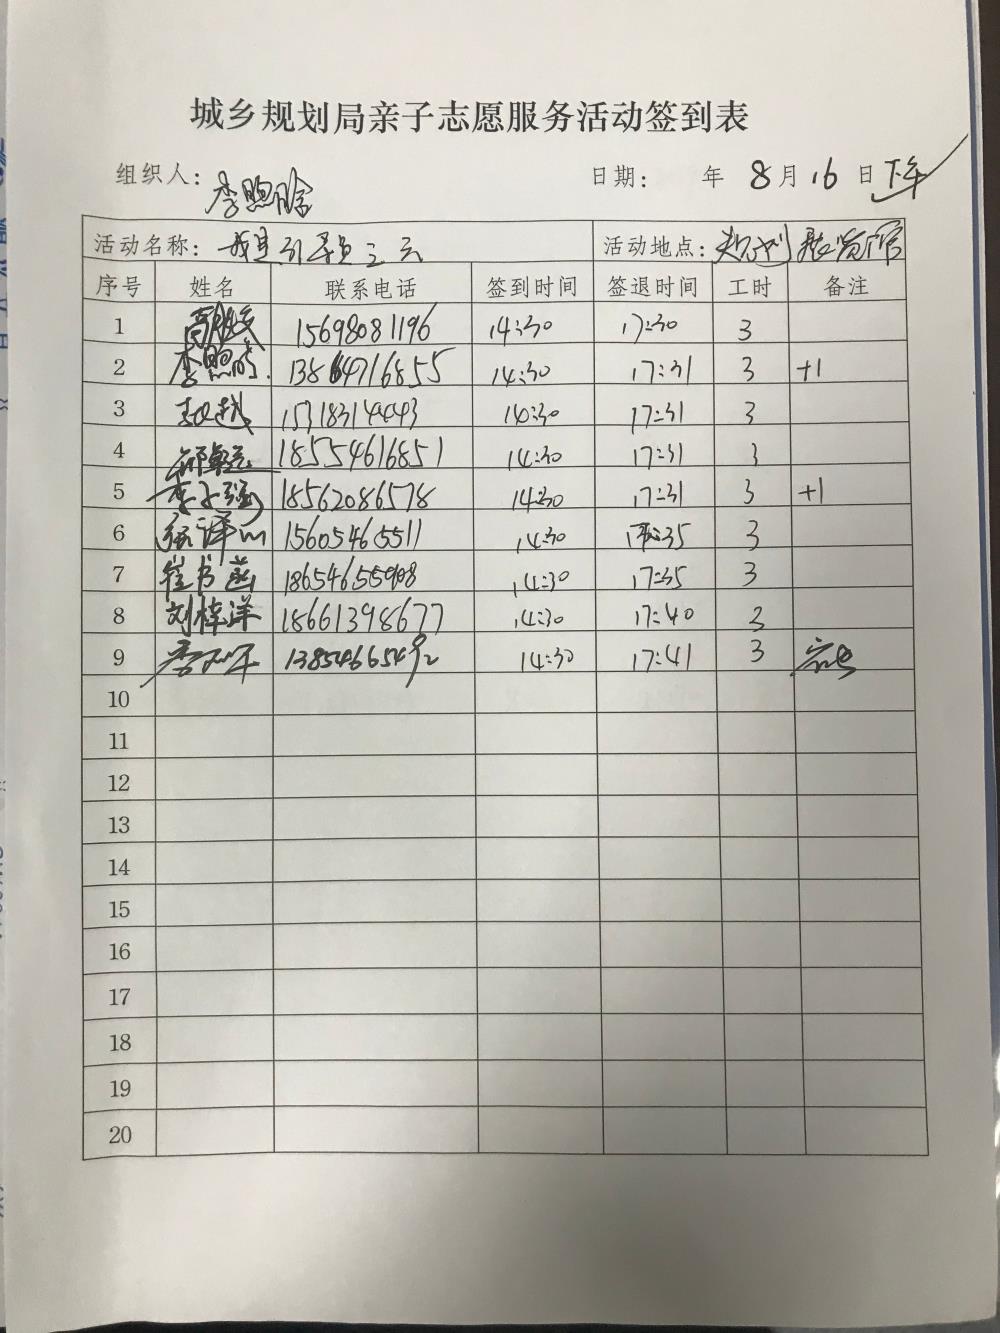 城乡规划局亲子志愿服务活动签到表
组织人: 李煦晗 日期: 年 8 月 16 日 下午
活动名称: 我是引导员之云 活动地点: 规划展览馆
序号 姓名 联系电话 签到时间 签退时间 工时 备注
1 15698081196 14:30 17:30 3
2 李煦晗 13864716855 14:30 17:31 3 +1
3 赵越 15318314443 14:30 17:31 3
4 18554616851 14:30 17:31 3
5 李子涵 18562086578 14:30 17:31 3 +1
6 张译心 15605465511 14:30 17:35 3
7 崔书菡 14:30 17:35 3
8 刘梓洋 18661398677 14:30 17:40 3
9 14:30 17:41 3
10
11
12
13
14
15
16
17
18
19
20